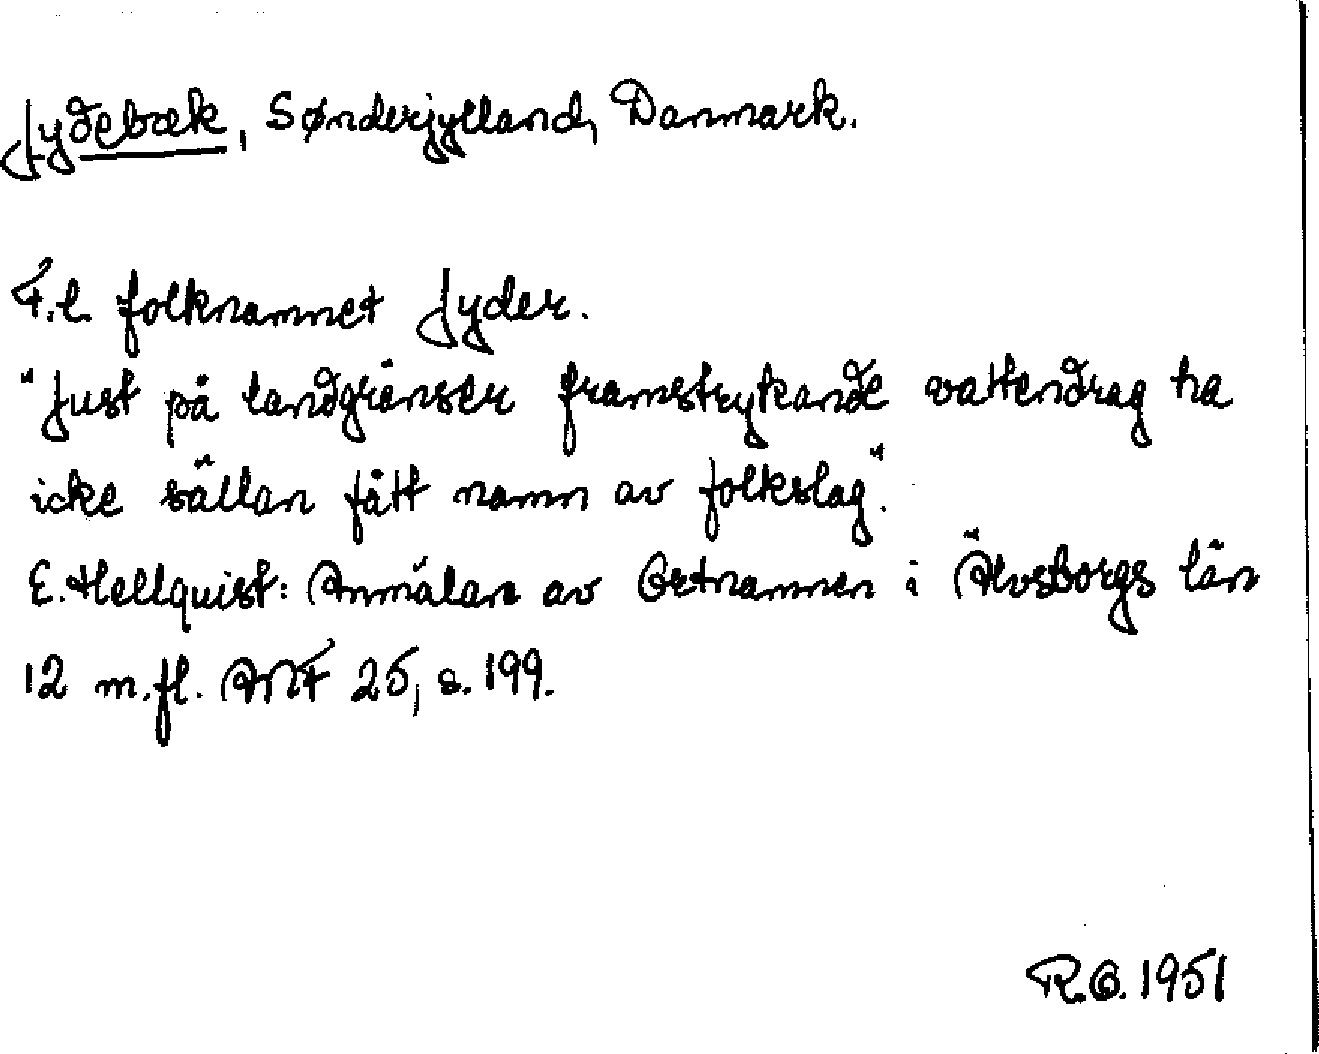 Jydebæk, Sønderjylland, Danmark.
F.l. folknamnet Jyder.
"Just på landgränser framstrykande vattendrag ha
icke sällan fått namn av folkslag".
E. Hellquist: Anmälan av Ortnamnen i Älvsborgs län
12 m.fl. ANF 25, s. 199.
R.O. 1951